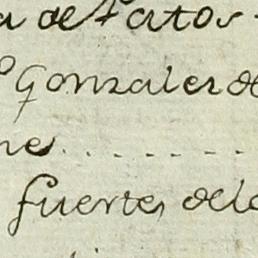 a de Patos
Gonzales de
ne........
fuerte, dela